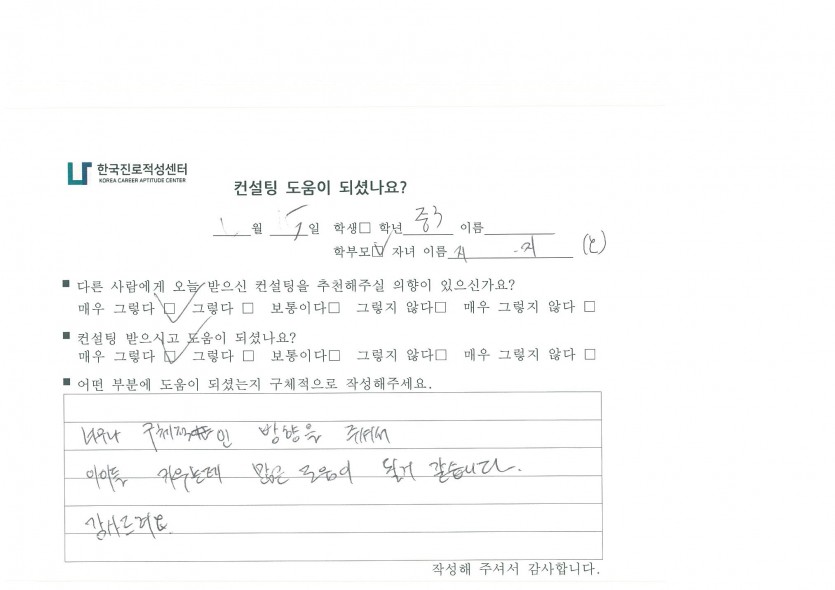 한국진로적성센터
KOREA CAREER APTITUDE CENTER
컨설팅 도움이 되셨나요?
월 일 학생□ 학년 중3 이름
학부모☑ 자녀 이름
■ 다른 사람에게 오늘 받으신 컨설팅을 추천해주실 의향이 있으신가요?
매우 그렇다 ☑ 그렇다 □ 보통이다□ 그렇지 않다□ 매우 그렇지 않다 □
■ 컨설팅 받으시고 도움이 되셨나요?
매우 그렇다 ☑ 그렇다 □ 보통이다□ 그렇지 않다□ 매우 그렇지 않다 □
■ 어떤 부분에 도움이 되셨는지 구체적으로 작성해주세요.
너무나 구체적인 방향을 주셔서
아이들 키우는데 많은 도움이 될거 같습니다.
감사드려요.
작성해 주셔서 감사합니다.